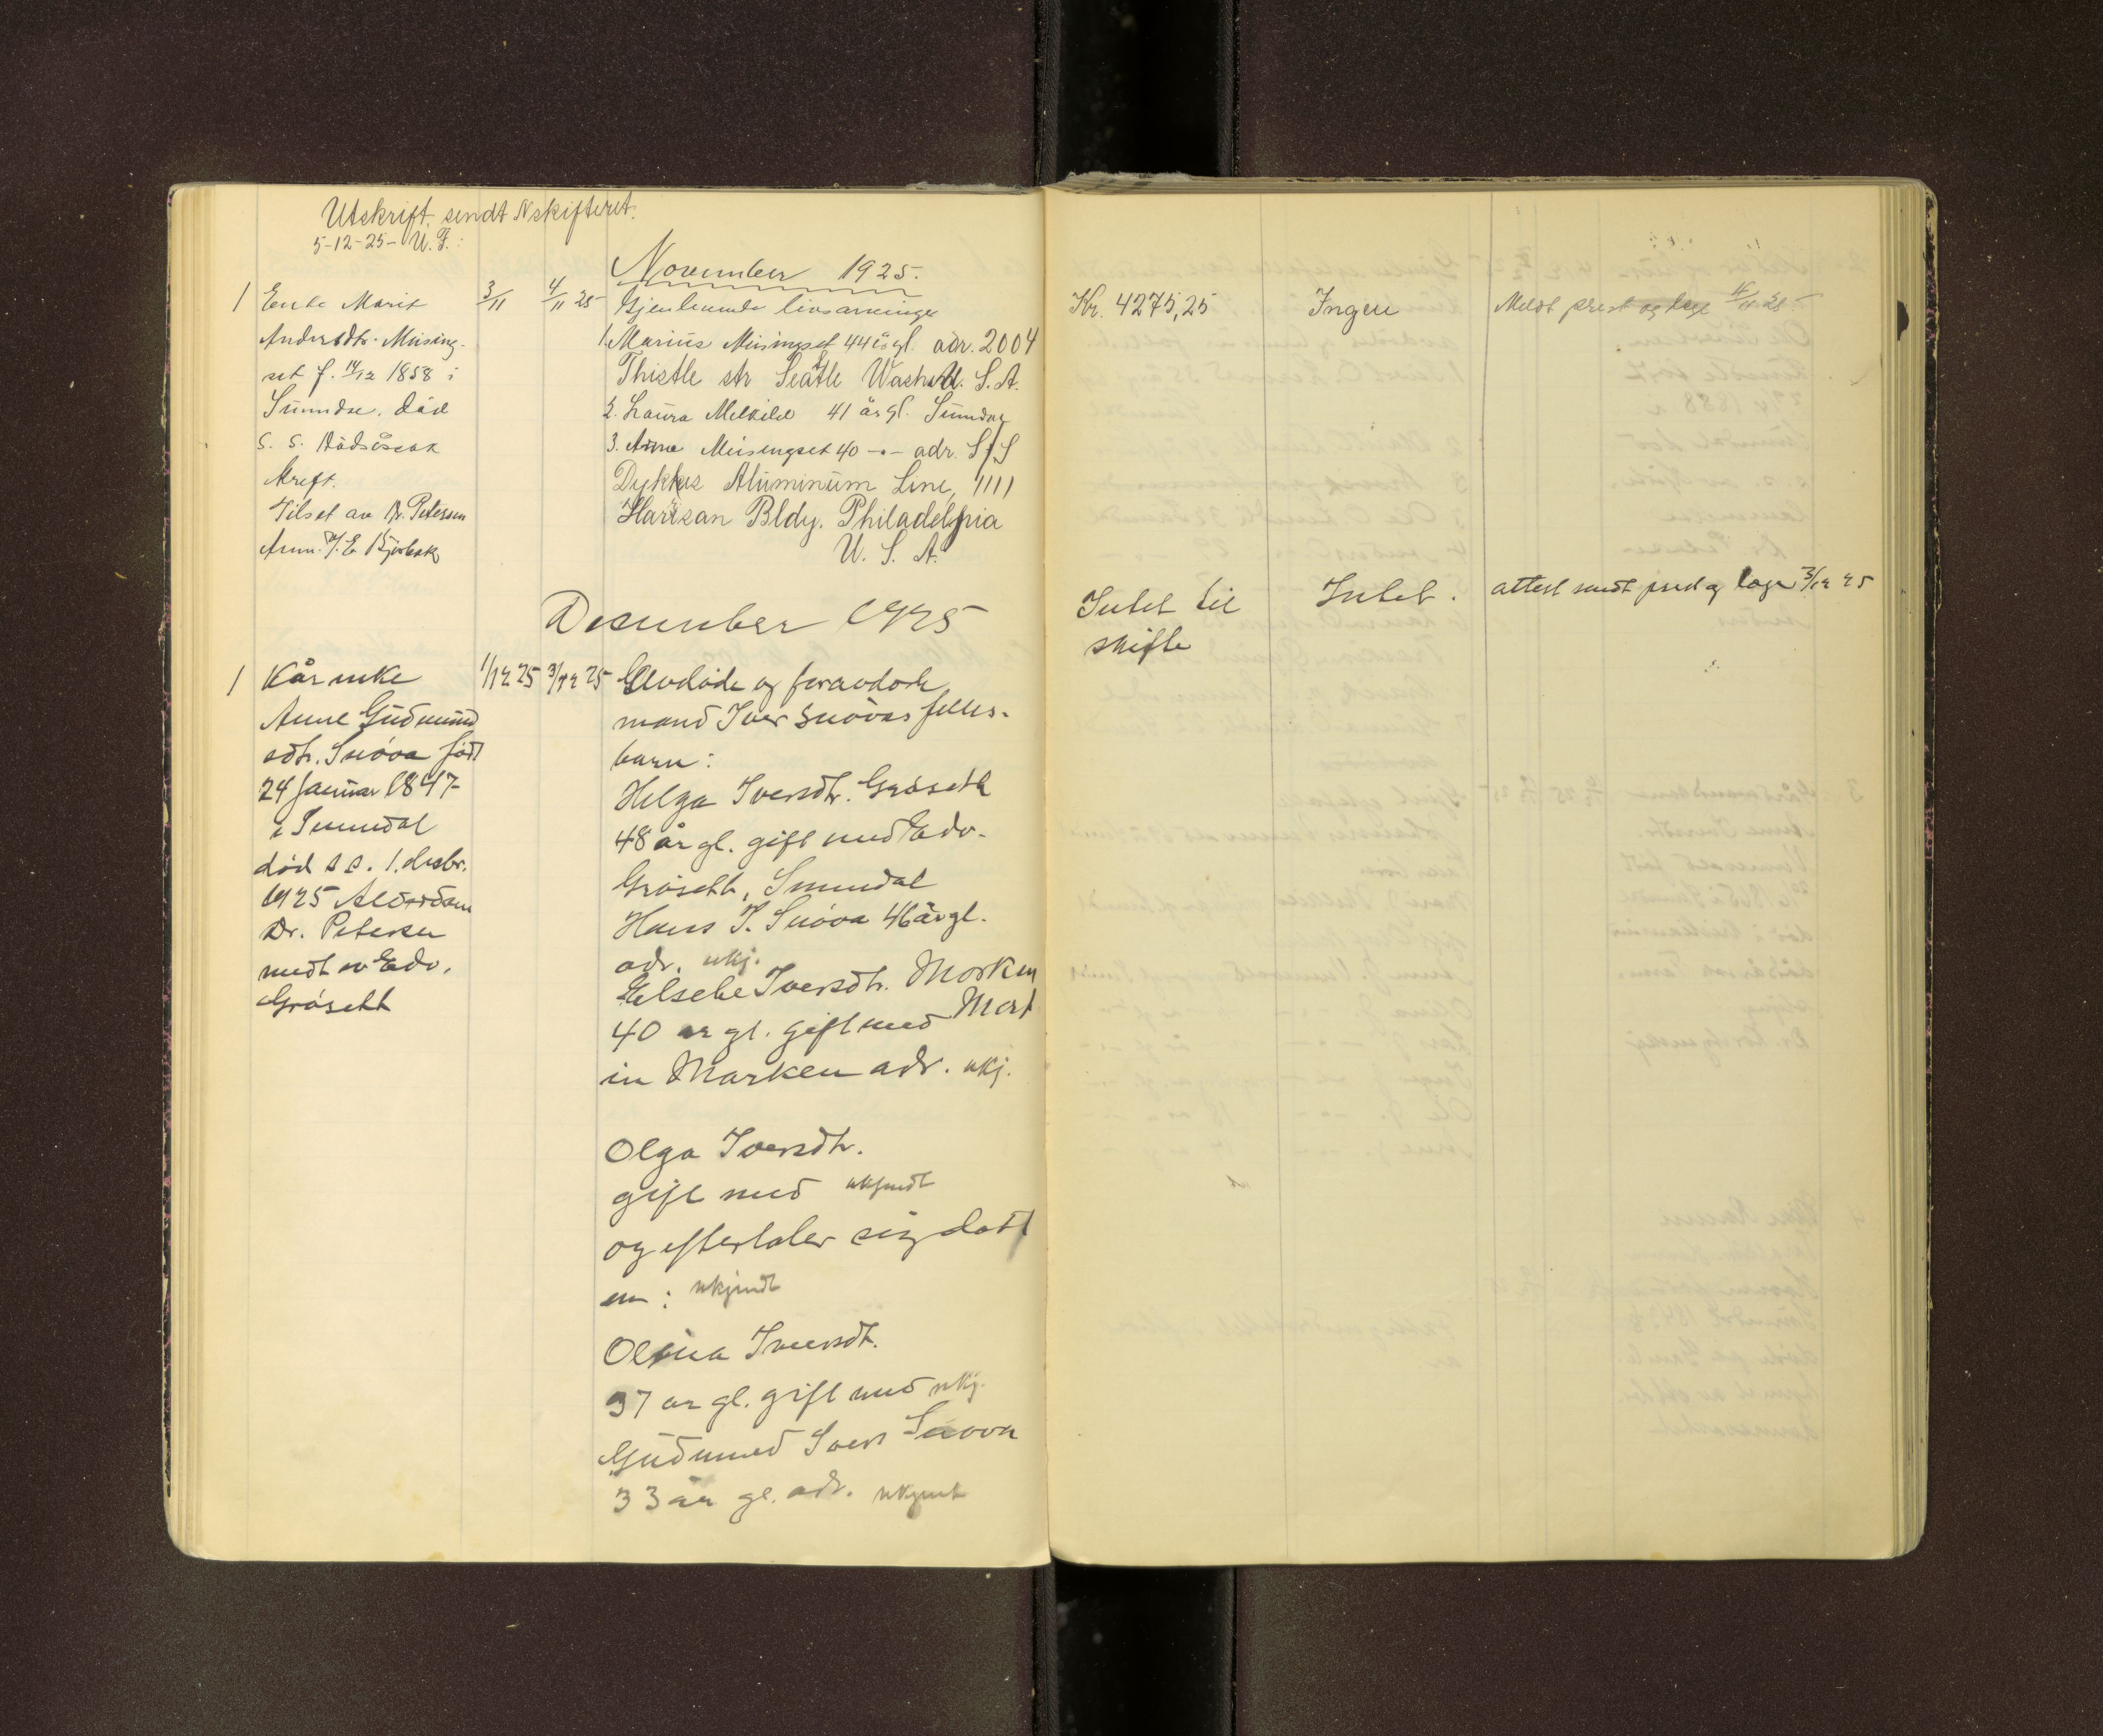 Utskrift sendt Nskifteret.
5-12-25- U. F.:
November 1925.
1 Enke Marit 3/11 4/11 25 Gjenlevende livsarvinger Kr. 4275,25 Ingen Meldt prest og lege 4/11 25
Andersdtr. Müsing-
set f. 14/12 1858 i
Sunndal. død
s. s. Dødsårsak
kreft.
Tilset av Dr. Petersen
Anm.
1. Marius Müsingset 44 år gl. adr. 2004
Thistle str Seatle Wash. U. S. A.
2. Laura Melkild 41 år gl. Sunndal
3. Anna Müsingset 40 -"- adr. S/S
Aluminum Line, 1111
Harisan Bldy. Philadelpia
U. S. A.
December 1925
Intet til Intet. attest sendt prest og lage 3/12 25
skifte
1 Kårenke 1/12 25 3/12 25 Avdøde og foravdøde
Anne Gudmund
sdtr. Snøva født
24 januar 1847
i Sunndal
død s s. 1. desbr.
1925 Alderdom
Dr. Petersen
meldt av Edv.
Grøseth
mand Iver Snøvas felles-
barn:
Helga Iversdtr. Grøseth
48 år gl. gift med Edv.
Grøseth, Sunndal
Hans I. Snøva 46 år gl.
adr. ukj.
Elsebe Iversdtr. Morken
40 år gl. gift med Mart
in Marken adr. ukj.
Olga Iversdtr.
gift med ukjendt
og efterlater sig datt
er: ukjendt
Olina Iversdt.
37 år gl. gift med ukj.
Gudmund Ivers Snøva
33 år gl. adr. ukjent